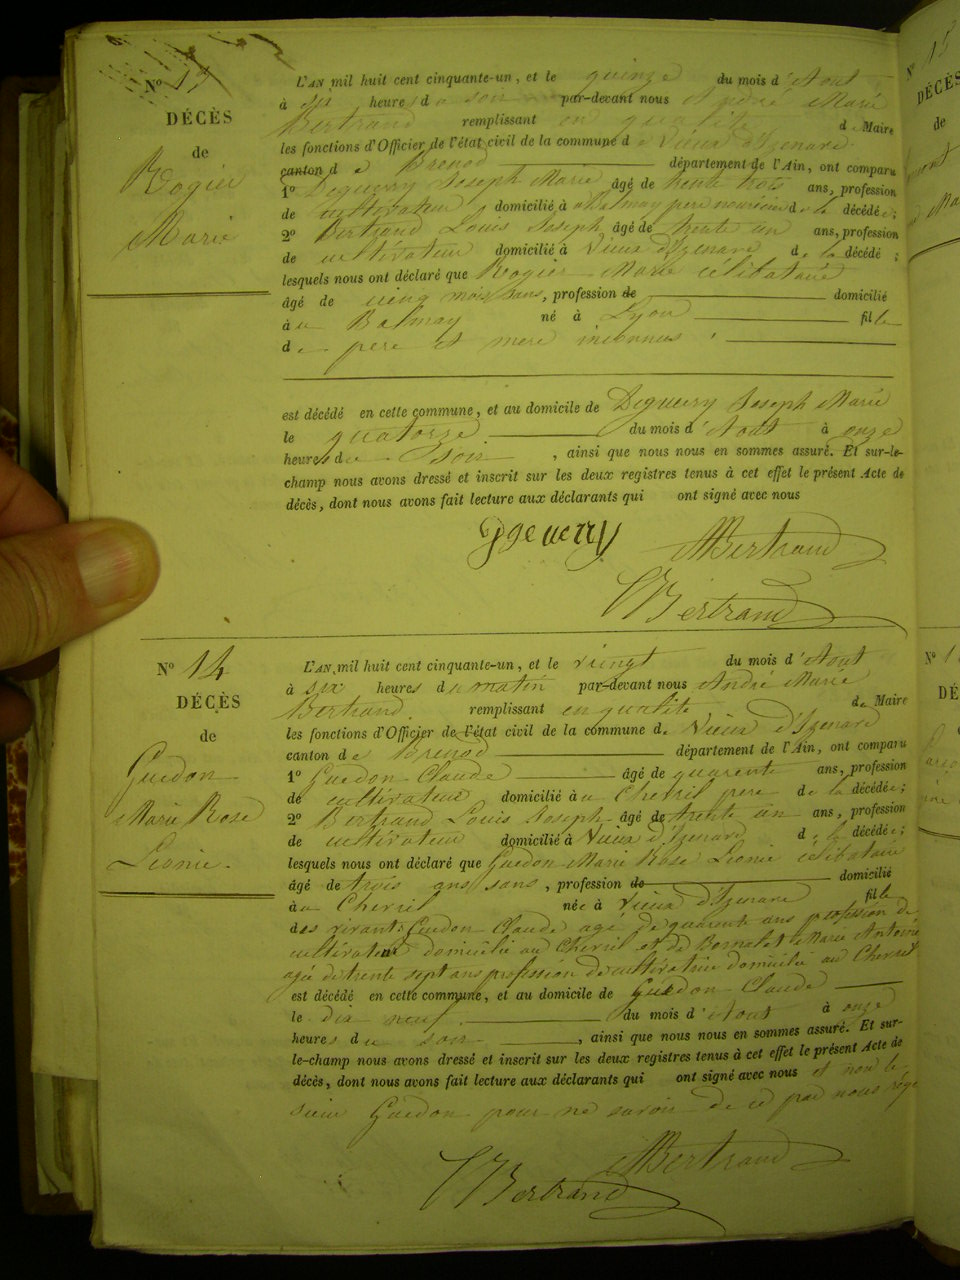 N° 13
DÉCÈS
de
Rogier
Marie
L'AN mil huit cent cinquante-un, et le quinze du mois d'Aout
à six heures du soir par-devant nous André Marie
Bertrand remplissant en qualité de Maire
les fonctions d'Officier de l'état civil de la commune de Vieux d'Izenave
canton de Brenod département de l'Ain, ont comparu
1° Deguerry Joseph Marie âgé de trente trois ans, profession
de cultivateur domicilié à Balmay pere nouricier de la décédée;
2° Bertrand Louis Joseph âgé de trente un ans, profession
de cultivateur domicilié à Vieux d'Izenave de la décédé;
lesquels nous ont déclaré que Rogier Marie célibataire
âgé de cinq mois sans, profession de domicilié
à au Balmay né à Lyon fille
de pere et mere inconnus
est décédé en cette commune, et au domicile de Deguerry Joseph Marie
le quatorze du mois d'Aout à onze
heures du soir, ainsi que nous nous en sommes assuré. Et sur-le-
champ nous avons dressé et inscrit sur les deux registres tenus à cet effet le présent Acte de
décès, dont nous avons fait lecture aux déclarants qui ont signé avec nous
AMBertrand
Bertrand
N° 14
DÉCÈS
de
Guedon
Marie Rose
Leonie.
L'AN mil huit cent cinquante-un, et le vingt du mois d'Aout
à six heures du matin par-devant nous André Marie
Bertrand remplissant en qualité de Maire
les fonctions d'Officier de l'état civil de la commune de Vieux d'Izenave
canton de Brenod département de l'Ain, ont comparu
1° Guedon Claude âgé de quarente ans, profession
de cultivateur domicilié au Chevril pere de la décédée;
2° Bertrand Louis Joseph âgé de trente un ans, profession
de cultivateur domicilié à Vieux d'Izenave de la décédée;
lesquels nous ont déclaré que Guedon Marie Rose Leonie célibataire
âgé de trois ans sans, profession de domicilié
à au Chevril née à Vieux d'Izenave fille
des vivants Guedon Claude agé de quarente ans profession de
cultivateur domicilié au Chevril et de Marie Antoinie
agée de trente sept ans profession de cultivatrice domiciliée au Chevril
est décédé en cette commune, et au domicile de Guedon Claude
le dix neuf du mois d'Aout à onze
heures du soir, ainsi que nous nous en sommes assuré. Et sur-
le-champ nous avons dressé et inscrit sur les deux registres tenus à cet effet le présent Acte de
décès, dont nous avons fait lecture aux déclarants qui ont signé avec nous et non le
Guedon pour ne savoir de ce par nous
AMBertrand
Bertrand